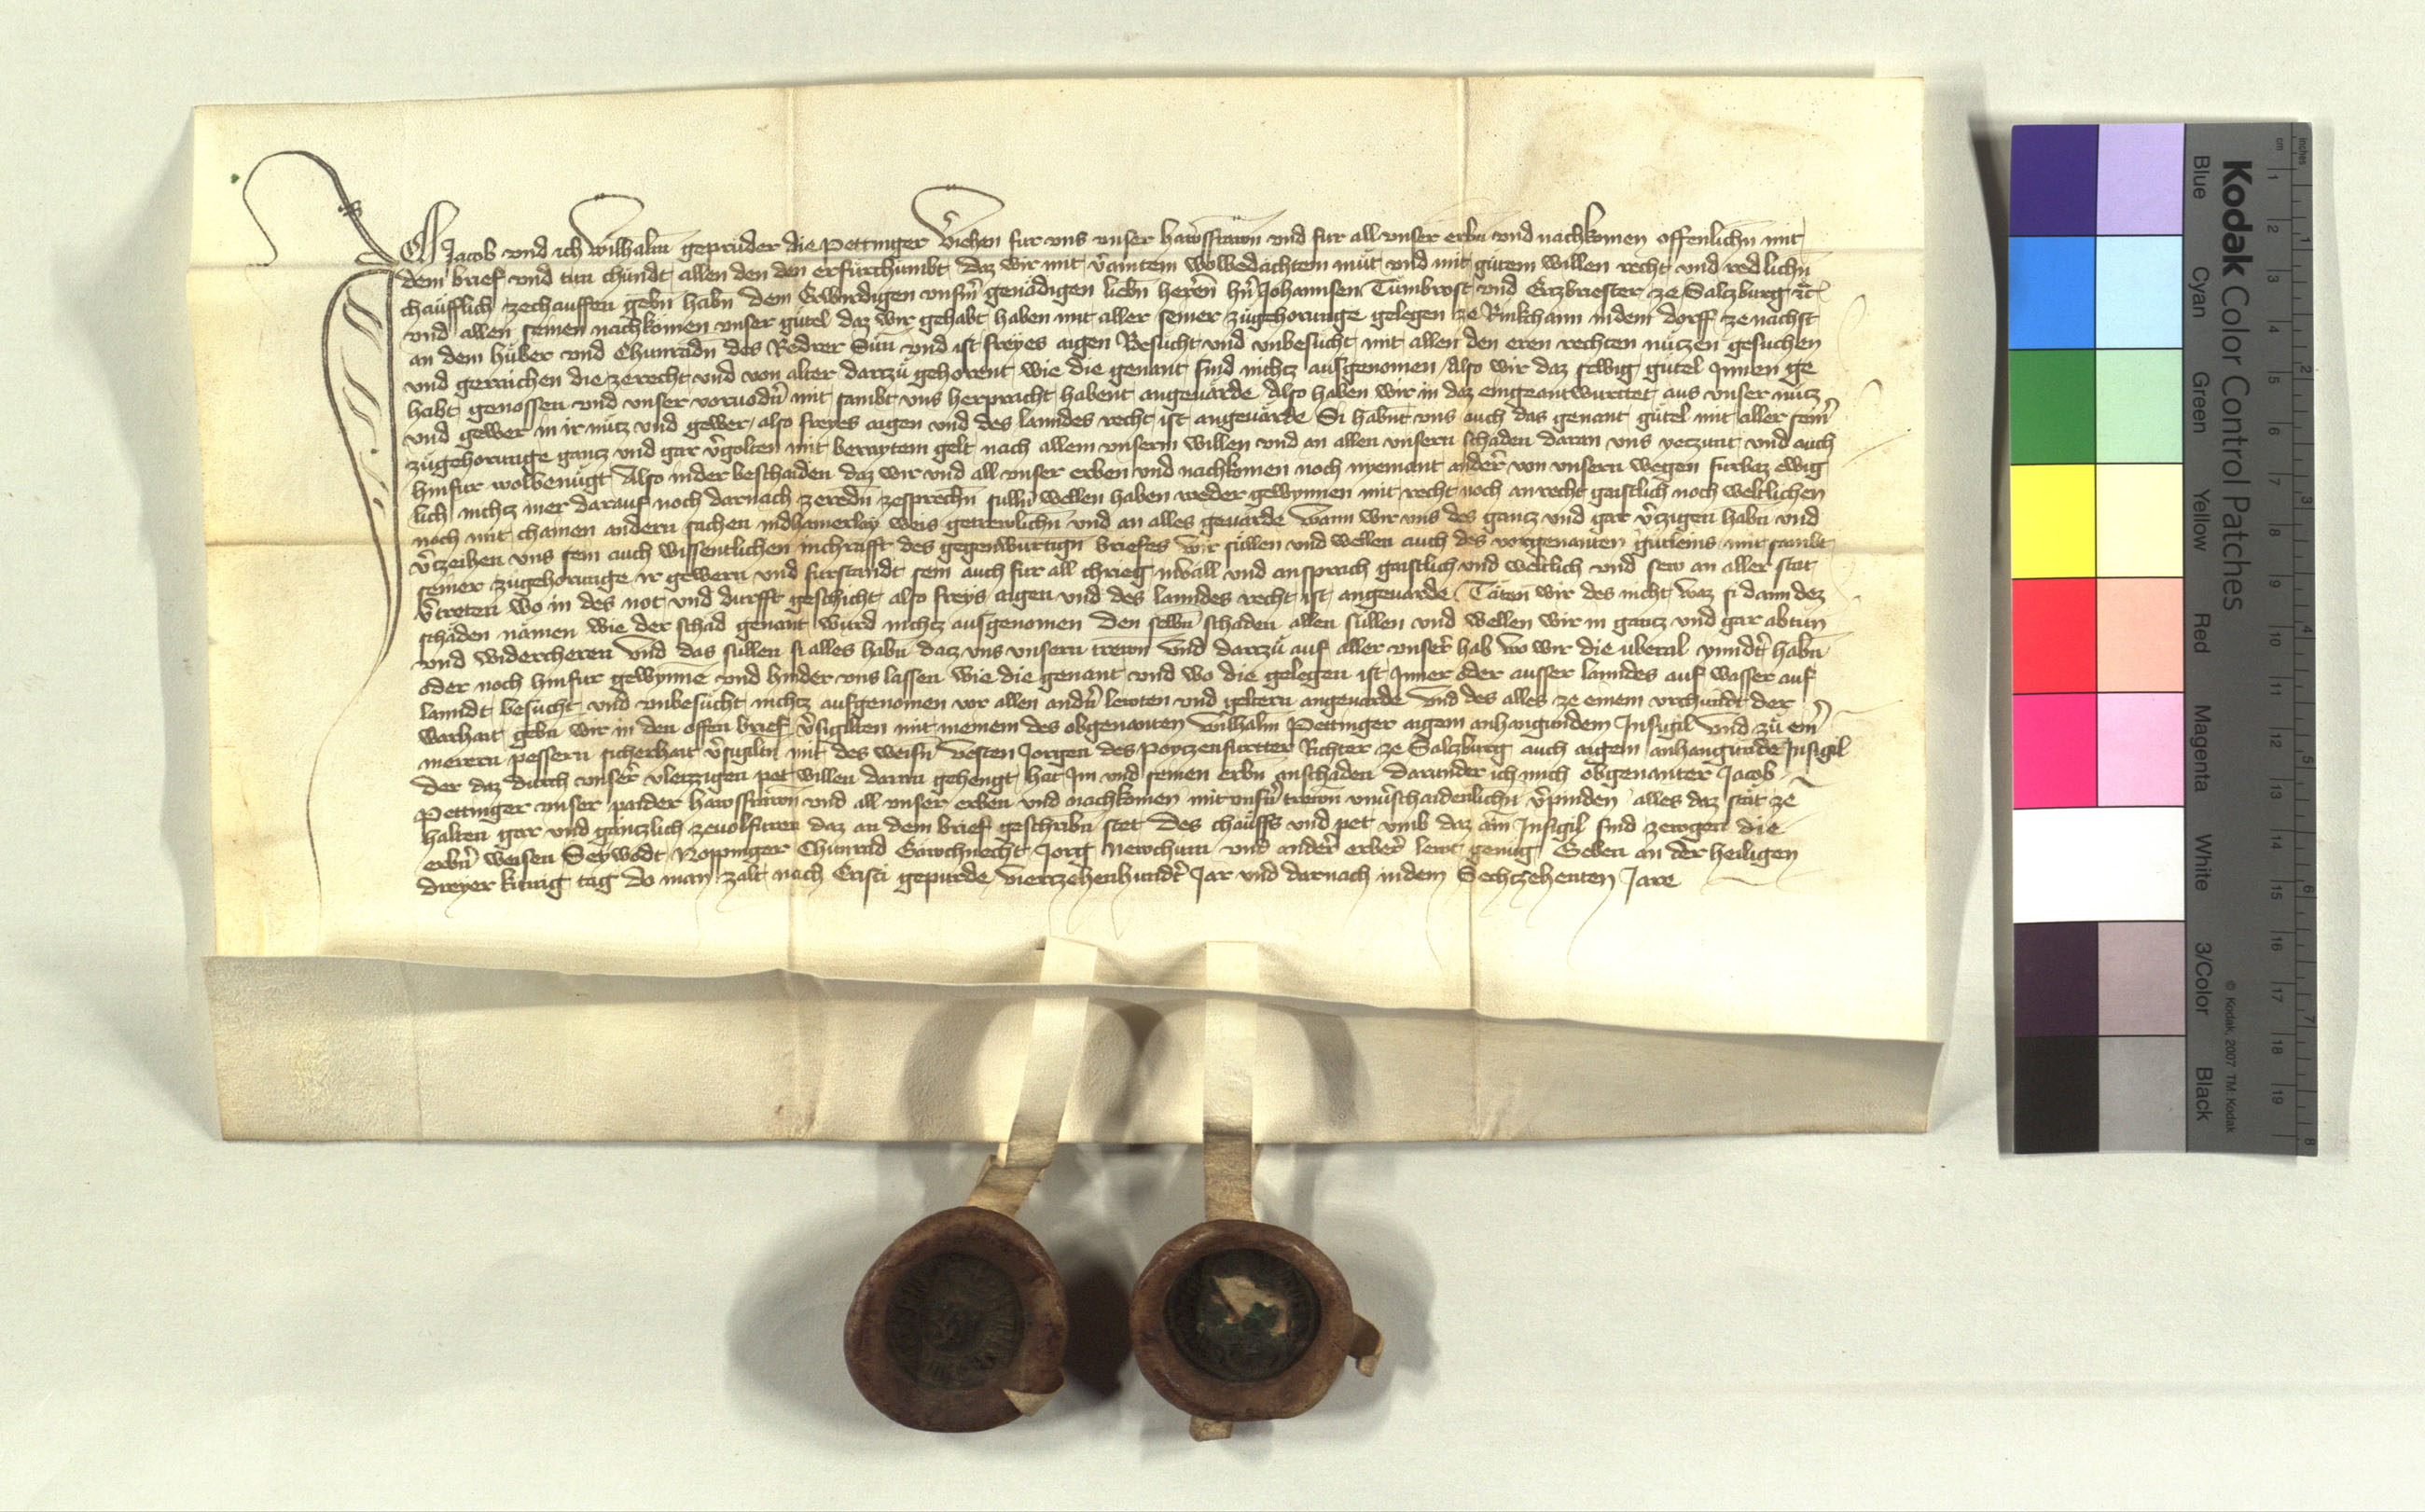 Ich Jacob vnd ich Wilhalm geprüder die Pettinger Viehen fur vns vnser hawsfrawn vnd fur all vnser erbn vnd nachkomen offenlichn mit
dem brief vnd tun chundt allen den den er furchumbt daz wir mit v̉aintem wolbedachtem müt vnd mit gütem willen recht vnd redlichn
chaufflich zechauffen gebn habn dem Erwirdigen vnsm̉ genädigen liebn herren hn̉ Johannsen Tümbrost vnd Erzbriester ze Salzburg ꝛc
vnd allen seinen nachkomen vnser gütel daz wir gehabt haben mit aller seiner zügehorunge gelegen ze Rinkhaim in dem dorff ze nachst
an dem hüber vnd Chunradn des Redrer Sun vnd ist freyes aigen Besücht vnd vnbesücht mit allen den eren rechten nützen gesuchen
vnd gerraichen die zerecht vnd von alter darrzü gehorent wie die genant sind nichtz ausgenomen Also wir daz selbig gütel Innen ge
habt genossen vnd vnser voruodn̉ mit sambt vns herpracht habent angeuärde Also haben wir in daz eingeantwurttet aus vnser nütz
vnd gewer in ir nütz vnd gewer also freyes aigen vnd des lanndes recht ist angeuärde Si habnt vns auch das genant gütel mit aller sein̉
zügehorunge gantz vnd gar v̉golten mit beraytem gelt nach allem vnserm willen vnd an allen vnsern schaden daran vns yetzunt vnd auch
hinfur wolbenügt Also in der beschaiden daz wir vnd all vnser erben vnd nachkomen noch nyemant ander̉ von vnsern wegen furbaz ewig
lich nichtz mer darauf noch darnach ze redn ze sprechn sulln wellen haben weder gewynnen mit recht noch an recht gaistlich noch weltlichen
noch mit chainen andern sachen in dhainerlay weis getrewlichn vnd an alles geuärde Wann wir vns des gantz vnd gar v̉tzigen habn vnd
v̉tzeihen vns sein auch wissentlichen in chrafft des gegenwurtign briefes Wir süllen vnd wellen auch des vorgenanten gütleins mit sambt
seiner zügehorunge ir gewern vnd furstandt sein auch fur all chrieg inväll vnd ansprach gaistlich vnd weltlich vnd sew an aller stat
v̉treten wo in des not vnd durfft geschicht also freys aigen vnd des lanndes recht ist angeuarde Täten wir des nicht waz si dann dez
schäden nämen wie der schad genant wurd nichtz ausgenomen Den selbn schaden allen süllen vnd wellen wir in gantz vnd gar abtün
vnd widercheren Vnd das süllen si alles habn datz vns vnsern trewn Vnd darrzü auf aller vnser̉ hab wo wir die uberal ynndt̉ habn
oder noch hinfur gewynne vnd hinder vns lassen wie die genant vnd wo die gelegen ist Inner oder ausser lanndes auf wasser auf
lanndt besücht vnd vnbesücht nichtz ausgenomen vor allen andn̉ lewten vnd geltern angeuarde Vnd des alles ze einem vrchundt der
warhait gebn wir in den offen brief v̉sigillten mit meinem des obgenanten Wilhalm Pettinger aigem anhangundem Insigil Vnd zü ein̉
merern pessern sicherhait v̉sigiltn mit des weisn Vesten Jorgen des Poytzenfurtter Richter ze Salzburg auch aigem anhangunde Insigil
der daz durch vnser̉ vleizzigen pet willen daran gehengt hat Im vnd seinen erbn anschaden Darunder ich mich obgenanter Jacob
Pettinger vnser paider hawsfrawn vnd all vnser erben vnd nachkomen mit vnsn̉ trewn vnủschaidenlichn v̉pinden alles daz stät ze
halten gar vnd gäntzlich zeuolfüren daz an dem brief geschribn stet Des chauffs vnd pet vmb daz ain Insigil sind zewgen die
erbn̉ weisen Noppinger Chunrad Gawchnecht Jorg Newchum vnd ander̉ erber̉ lewt genug Geben an der heiligen
dreyer künig tag do man zalt nach Cristi gepurde Viertzehenhundt̉ Jar vnd darnach in dem Sechtzehenten Jare
Kodak Color Control Patches
Blue Cyan Green Yellow Red Magenta White 3/Color Black
© Kodak, 2007 TM: Kodak
inches 1 2 3 4 5 6 7 8
cm 1 2 3 4 5 6 7 8 9 10 11 12 13 14 15 16 17 18 19